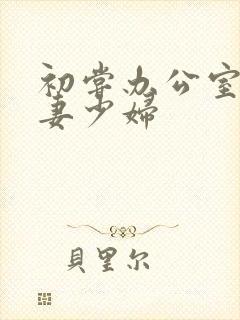 初尝办公室
妻少婦
貝里尔